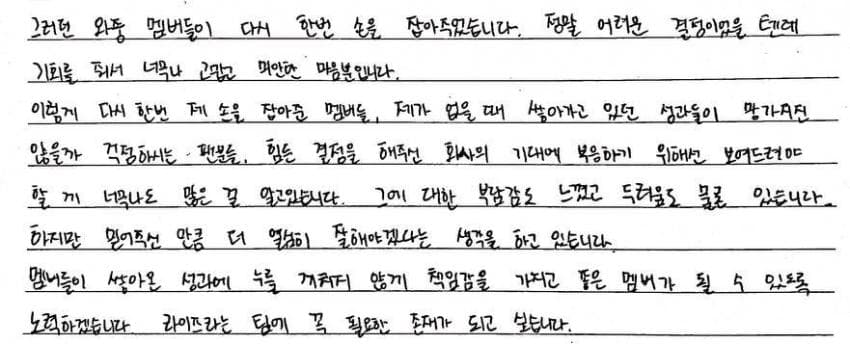 그러던 와중 멤버들이 다시 한번 손을 잡아주었습니다. 정말 어려운 결정이었을 텐데
기회를 줘서 너무나 고맙고 미안한 마음뿐입니다.
이렇게 다시 한번 제 손을 잡아준 멤버들, 제가 없을 때 쌓아가고 있던 성과들이 망가지진
않을까 걱정하시는 팬분들, 힘든 결정을 해주신 회사의 기대에 부응하기 위해선 보여드려야
할 게 너무나도 많은 걸 알고있습니다. 그에 대한 부담감도 느꼈고 두려움도 물론 있습니다.
하지만 믿어주신 만큼 더 열심히 잘해야겠다는 생각을 하고 있습니다.
멤버들이 쌓아온 성과에 누를 끼치지 않게 책임감을 가지고 좋은 멤버가 될 수 있도록
노력하겠습니다 라이즈라는 팀에 꼭 필요한 존재가 되고 싶습니다.